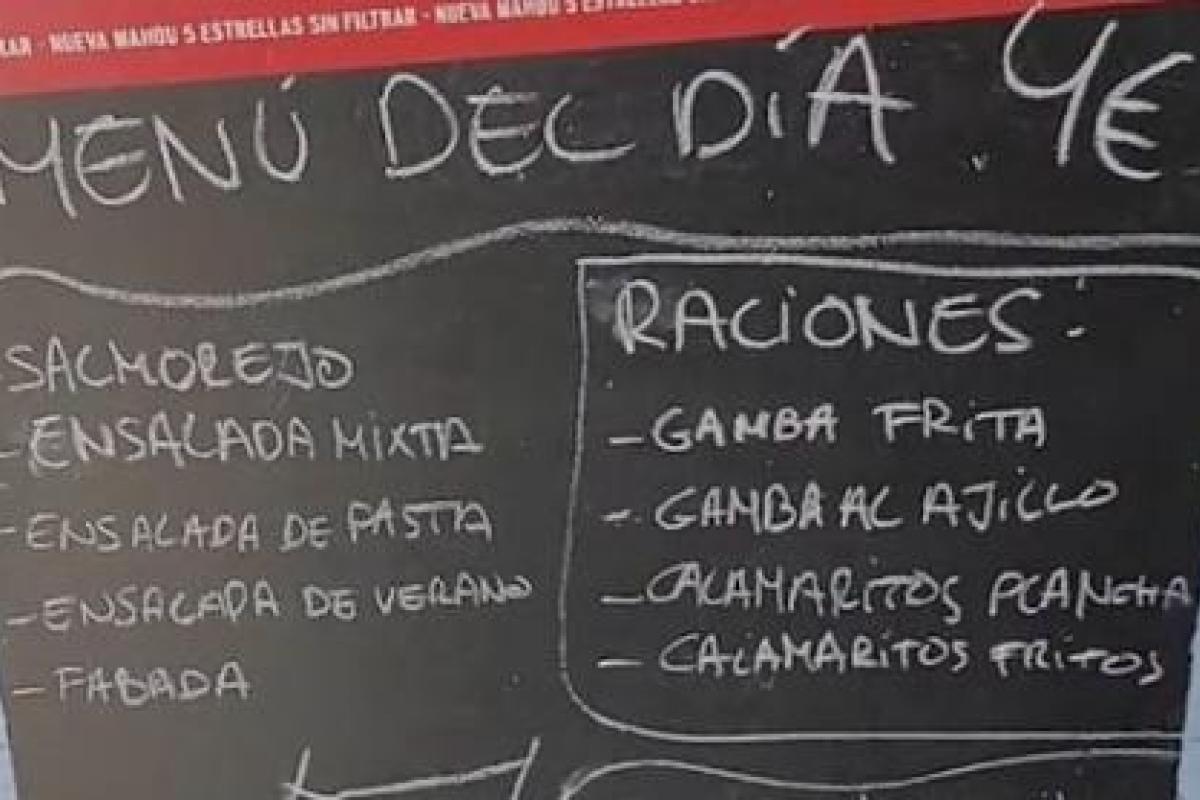 RAR - NUEVA MAHOU 5 ESTRELLAS SIN FILTRAR - NUEVA MAHOU 5 ESTRELLAS
MENÚ DEL DÍA. 4€
SALMOREJO
- ENSALADA MIXTA
- ENSALADA DE PASTA
- ENSALADA DE VERANO
- FABADA
RACIONES:
- GAMBA FRITA
- GAMBA AL AJILLO
- CALAMARITOS PLANCHA
- CALAMARITOS FRITOS